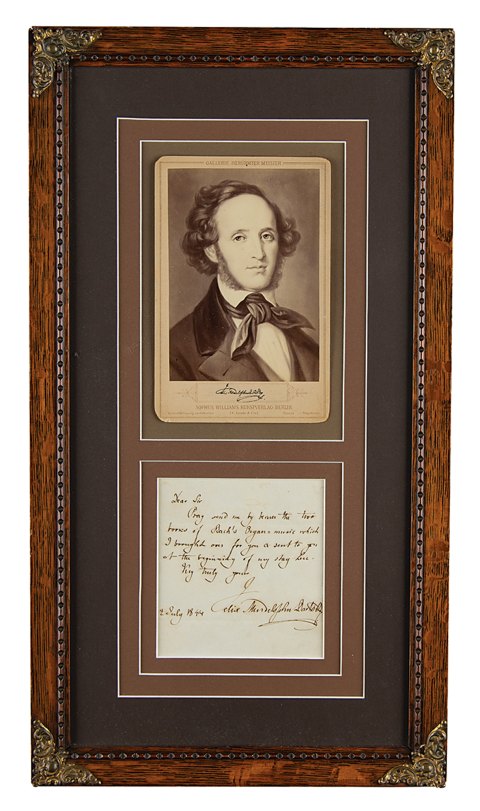 GALLERIE BERÜHMTER MEISTER
SOPHUS WILLIAMS KUNSTVERLAG BERLIN
Dear Sir
Pray send me by bearer the two
books of Bach's Organ-music which
I brought over for you & sent to you
at the beginning of my stay here.
Very truly yours
Felix Mendelssohn Bartholdy
2 July 1844